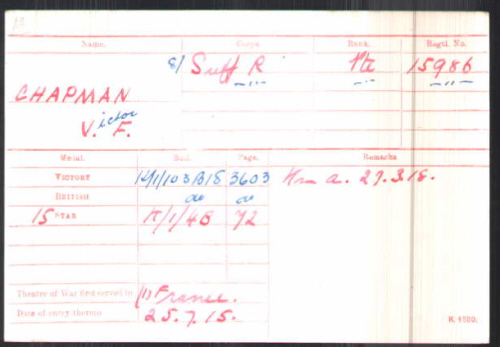 Name. Corps. Rank. Regtl. No.
8/ Suff R Pte 15986
CHAPMAN
Victor F.
Medal. Roll. Page. Remarks
VICTORY K/1/103B18 3603 K in a. 27.3.18.
BRITISH do do
15 STAR K/1/4B 72
Theatre of War first served in (1) France.
Date of entry therein 25.7.15.
K. 1380.